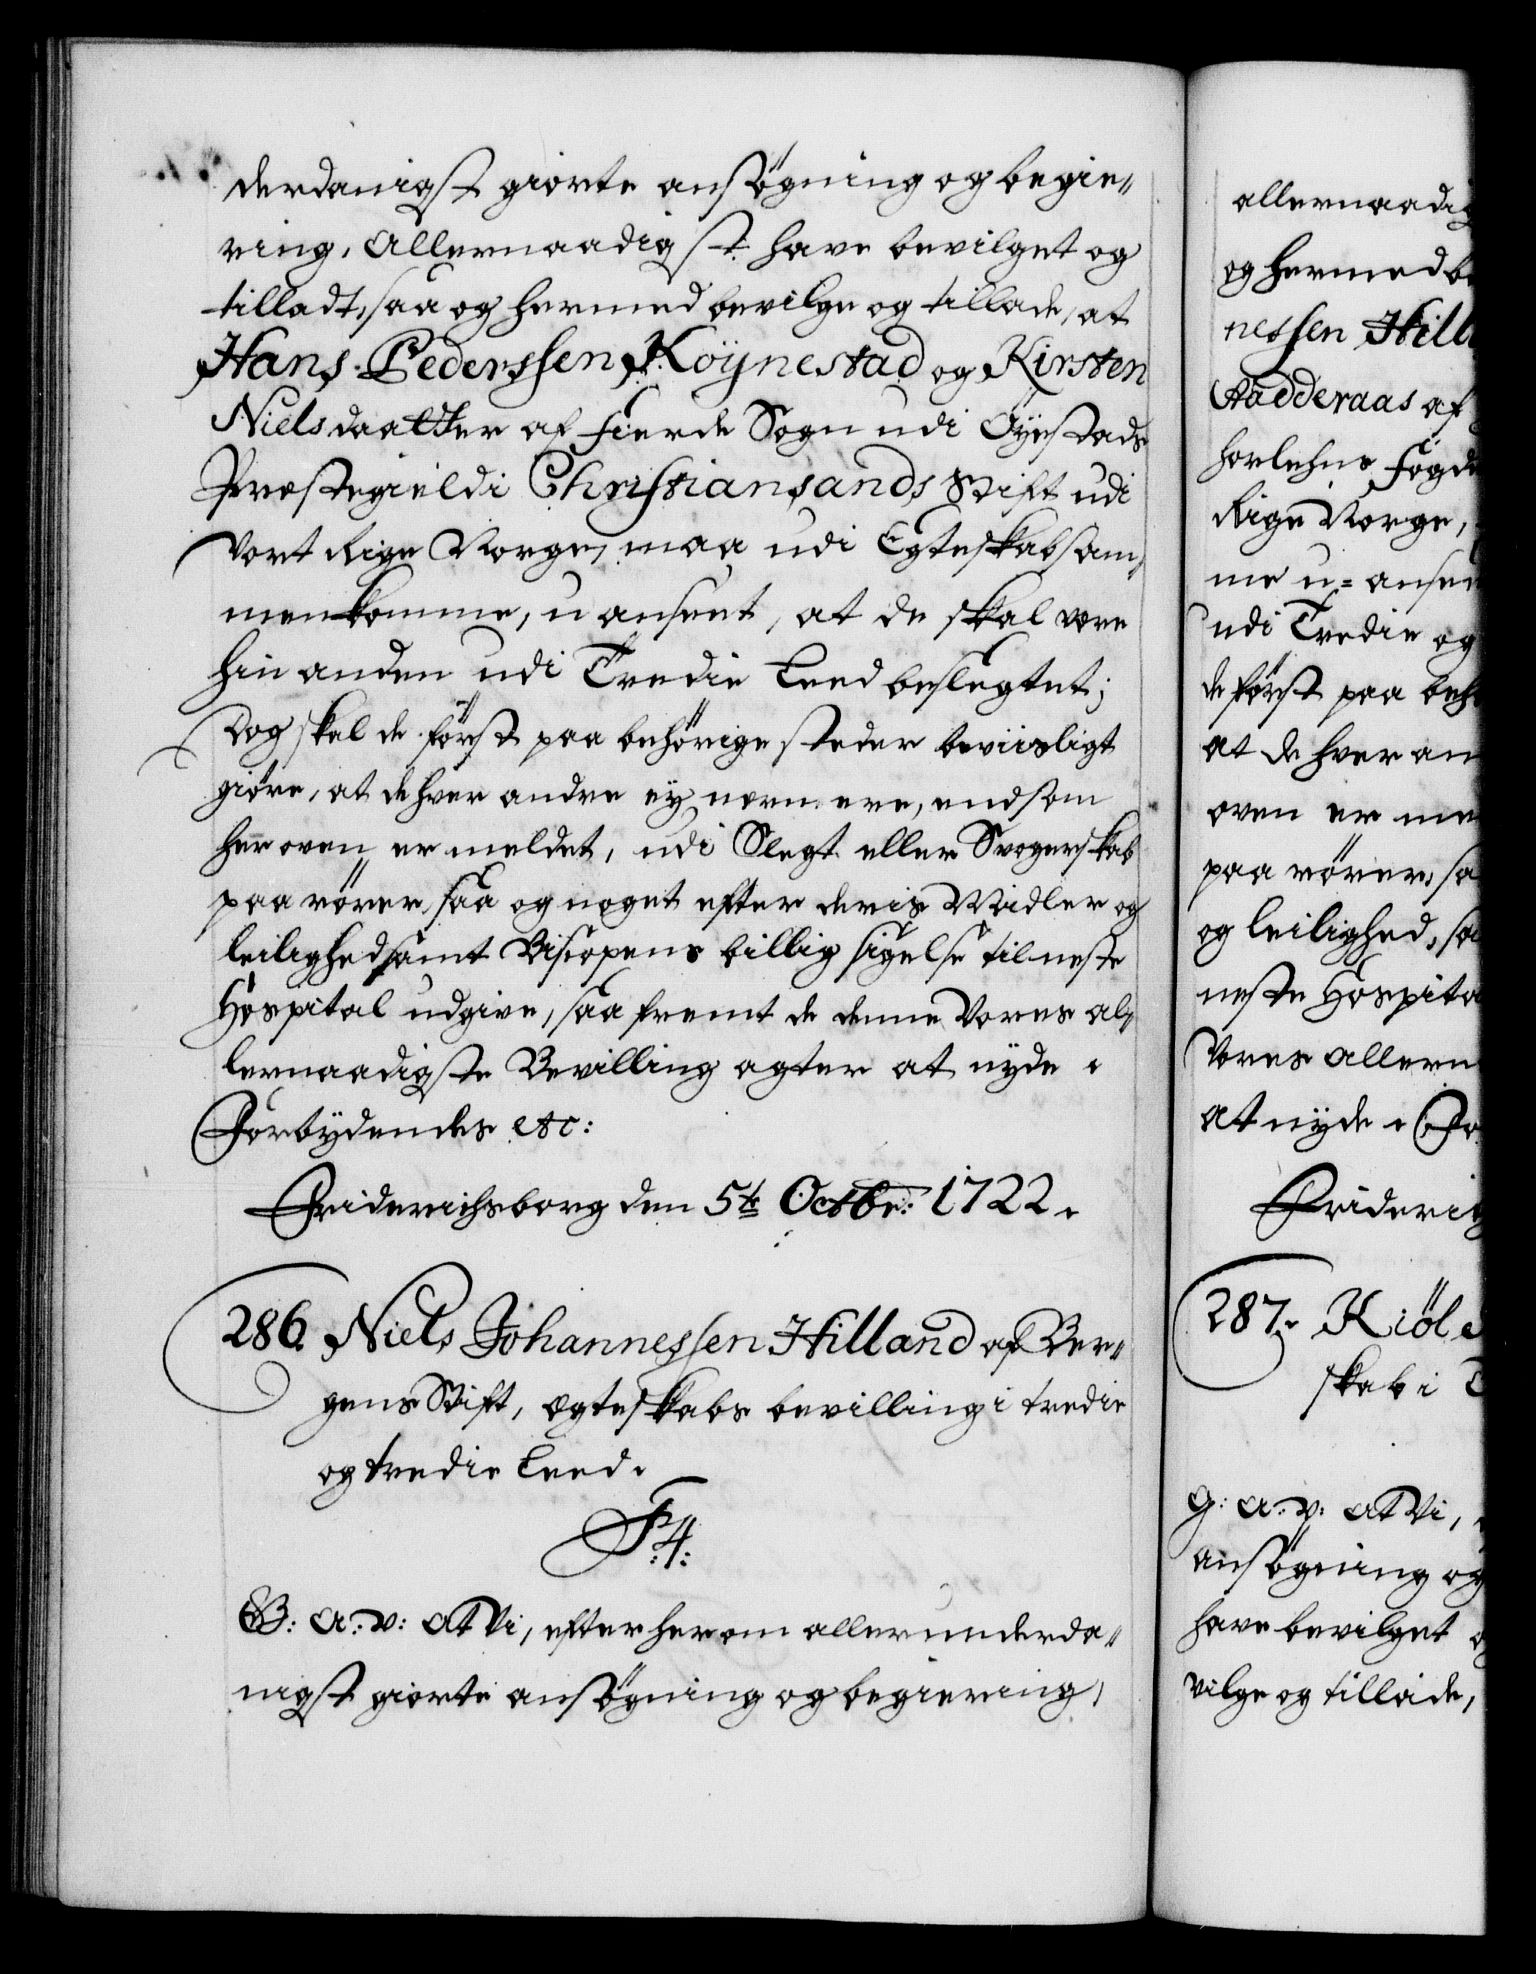 derdanigst giorte ansøgning og begie„
ring, Allernaadigst have bevilget og
tilladt, saa og hermed bevilge og tillade, at
Hans Pederssen Köÿnestad og Kirsten
Niels daatter af Fierde Sogn udi Öÿestads
Præstegield i Christiansands Stift udi
Vort Rige Norge, maa udi Egteskab sam„
menkomme, u anseet, at de skal være
hin anden udi Tredie Leed beslegtet;
Dog skal de først paa behörige steder beviisligt
giøre, at de hver andre eÿ nermere, end som
her oven er meldet, udi Slegt eller Svogerskab
paa rörer, saa og noget efter deris Midler og
leilighed samt Biscopens billig sigelse til neste
Hospital udgive, saa fremt de denne Vores al„
lernaadigste Bevilling agter at nyde.
Forbydendes etc:
Friderichsborg den 5te Octbr: 1722.
286. Niels Johannessen Hilland af Ber„
gens Stift, Egteskabs bevilling i tredie
og tredie Leed.
F4:
G: A: V: At Vi, efter herom allerunderda„
nigst giorte ansøgning og begiering,
allernaadig
og hermed be
nessen Hill
Aadderaas af
horlehns Fogde
Rige Norge,
me u= anse
udi Tredie og
de först paa beh
at de hver an
oven er me
paa rörer, sa
og leilighed, sa
neste Hospita
Vores allern
at nÿde. For
Friderig
287. Kiöl
skab i T
G: A: V: At Vi,
ansögning og
have bevilget o
vilge og tillade,